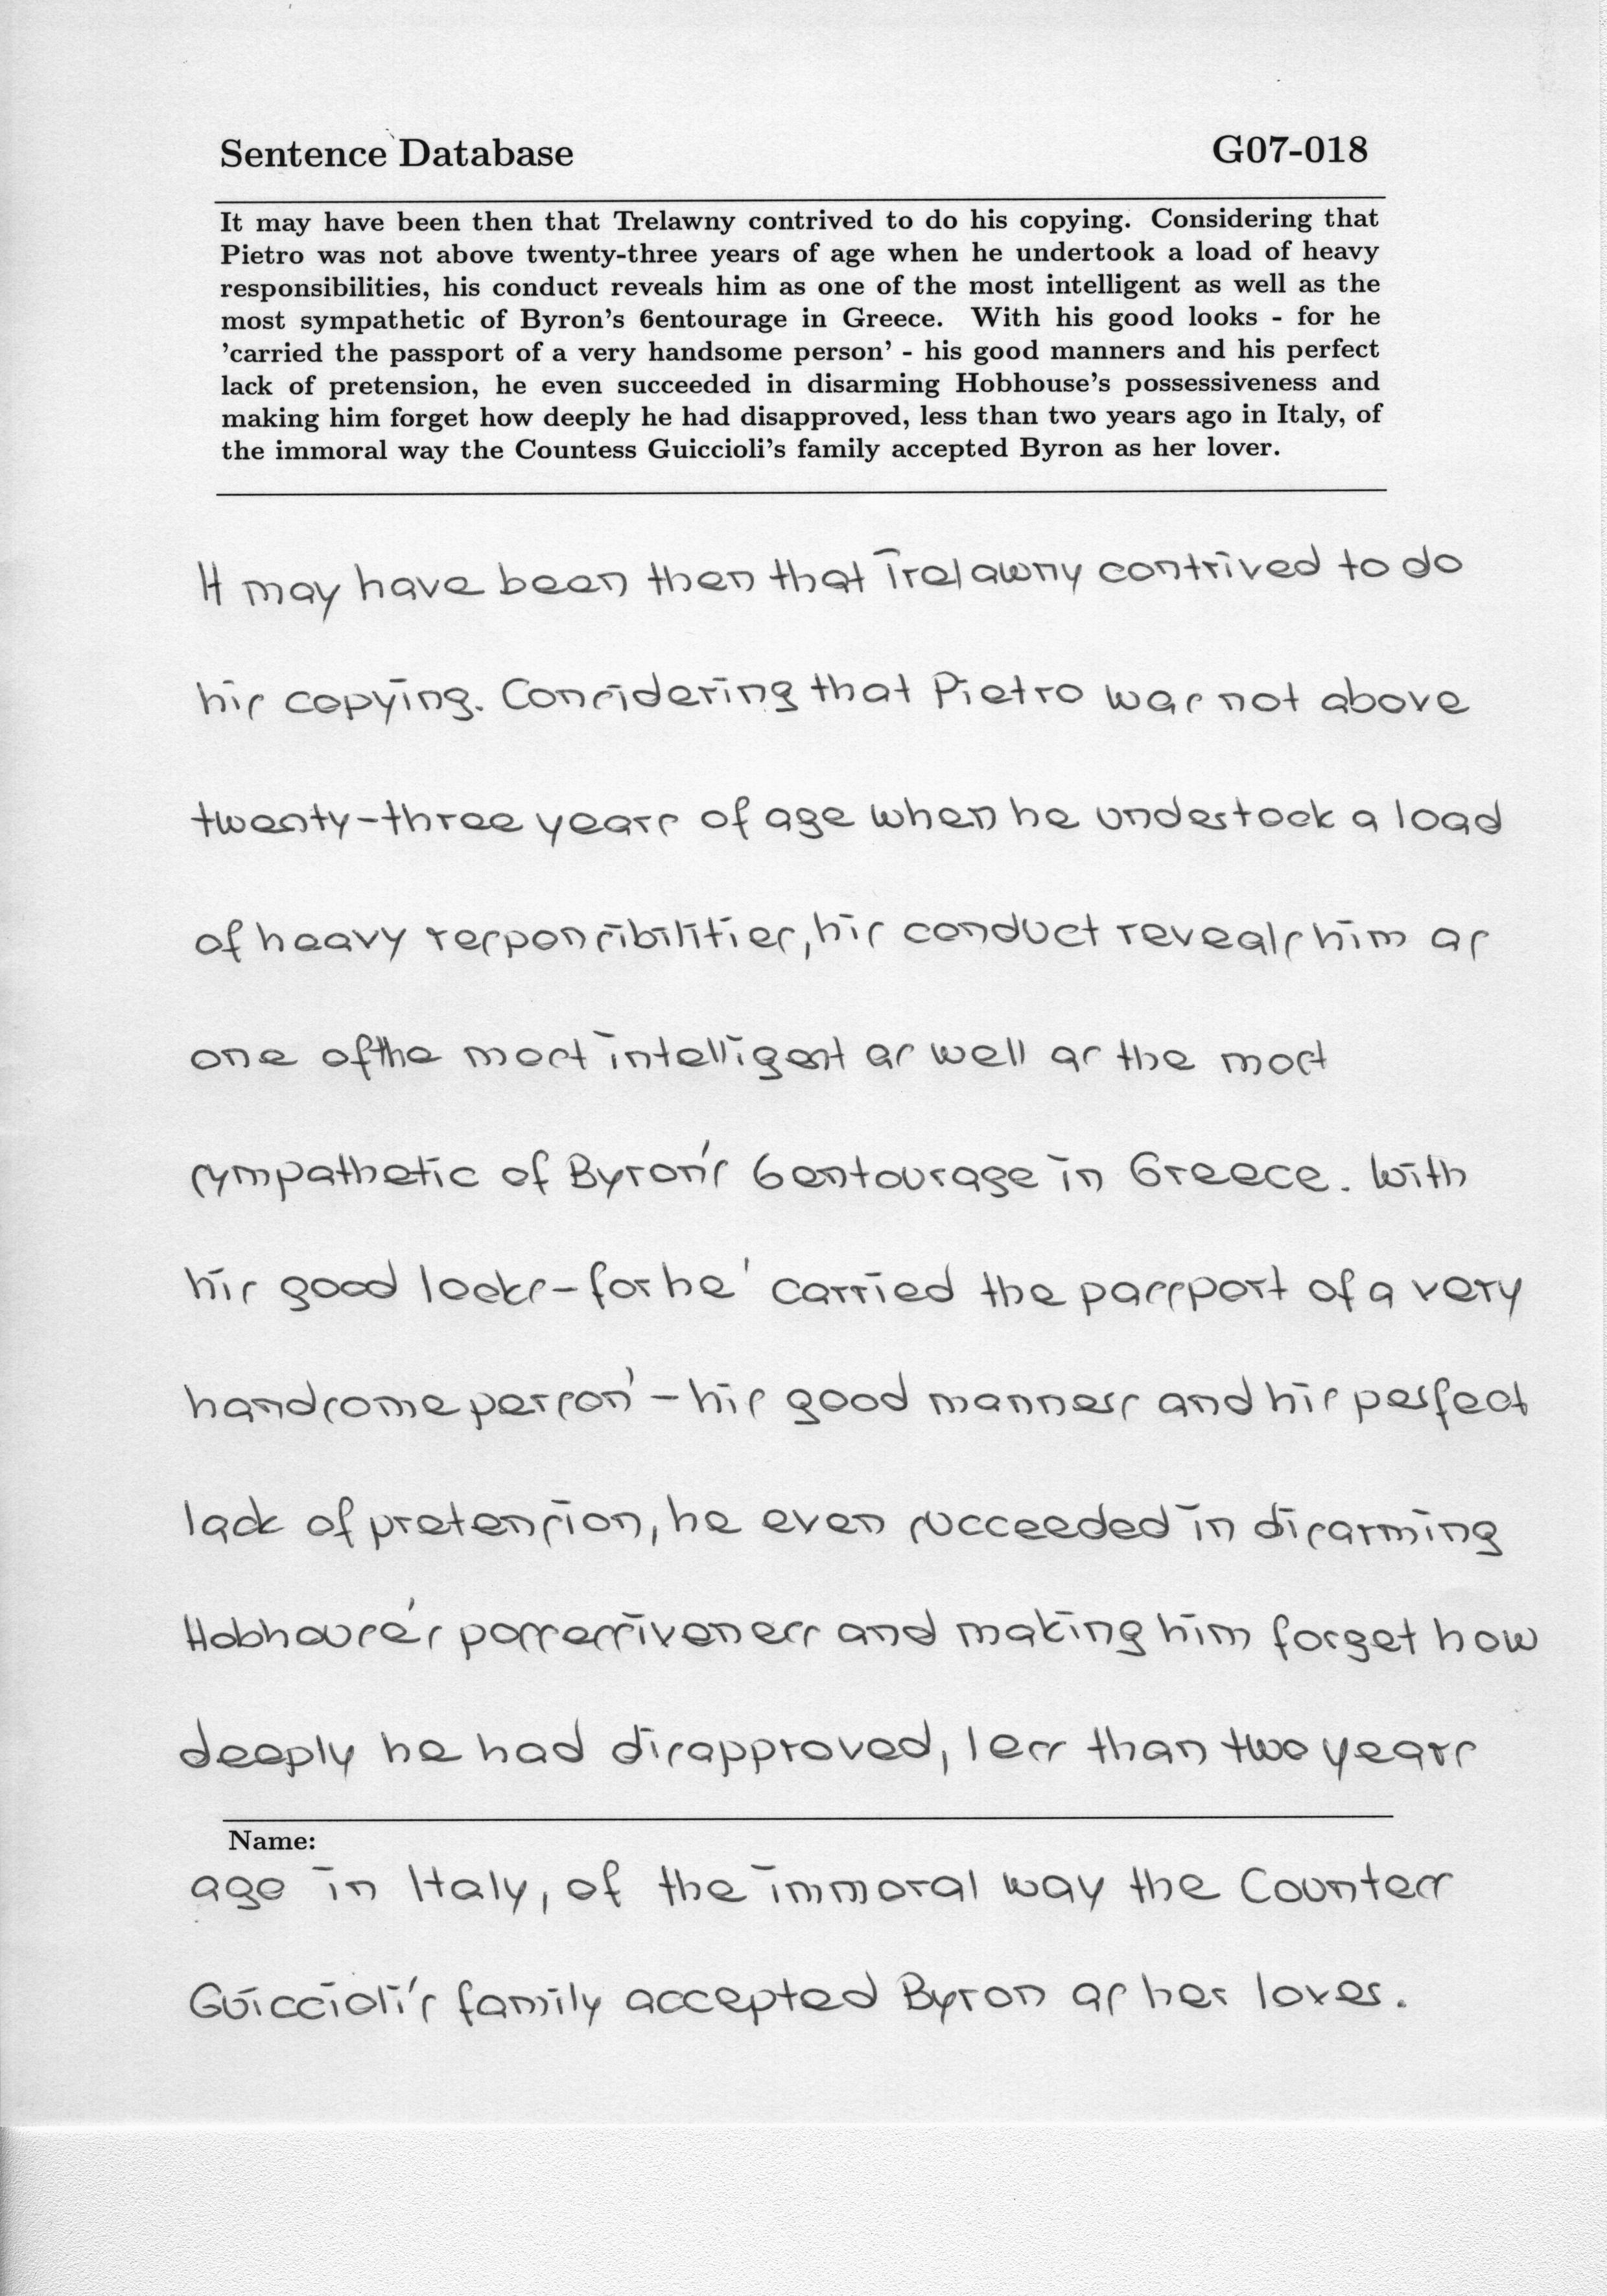 Sentence Database G07-018
It may have been then that Trelawny contrived to do his copying. Considering that
Pietro was not above twenty-three years of age when he undertook a load of heavy
responsibilities, his conduct reveals him as one of the most intelligent as well as the
most sympathetic of Byron's 6entourage in Greece. With his good looks - for he
'carried the passport of a very handsome person' - his good manners and his perfect
lack of pretension, he even succeeded in disarming Hobhouse's possessiveness and
making him forget how deeply he had disapproved, less than two years ago in Italy, of
the immoral way the Countess Guiccioli's family accepted Byron as her lover.
It may have been then that Trelawny contrived to do
his copying. Considering that Pietro was not above
twenty-three years of age when he undertook a load
of heavy responsibilities, his conduct reveals him as
one of the most intelligent as well as the most
sympathetic of Byron's 6entourage in Greece. With
his good looks - for he 'carried the passport of a very
handsome person' - his good manners and his perfect
lack of pretension, he even succeeded in disarming
Hobhouse's possessiveness and making him forget how
deeply he had disapproved, less than two years
Name:
ago in Italy, of the immoral way the Countess
Guiccioli's family accepted Byron as her lover.